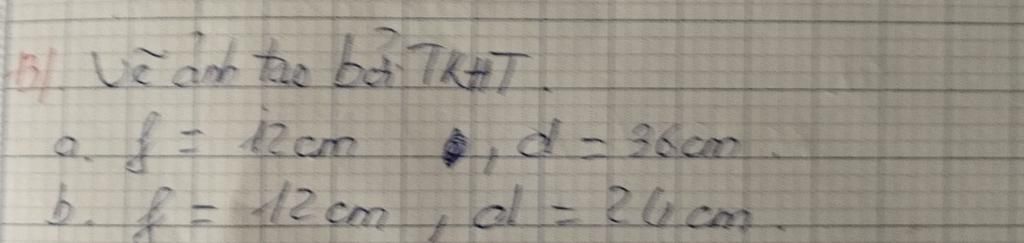 B/. Vẽ ảnh tạo bởi TKHT.
a. f = 12cm , d = 36cm.
b. f = 12cm , d = 24cm.